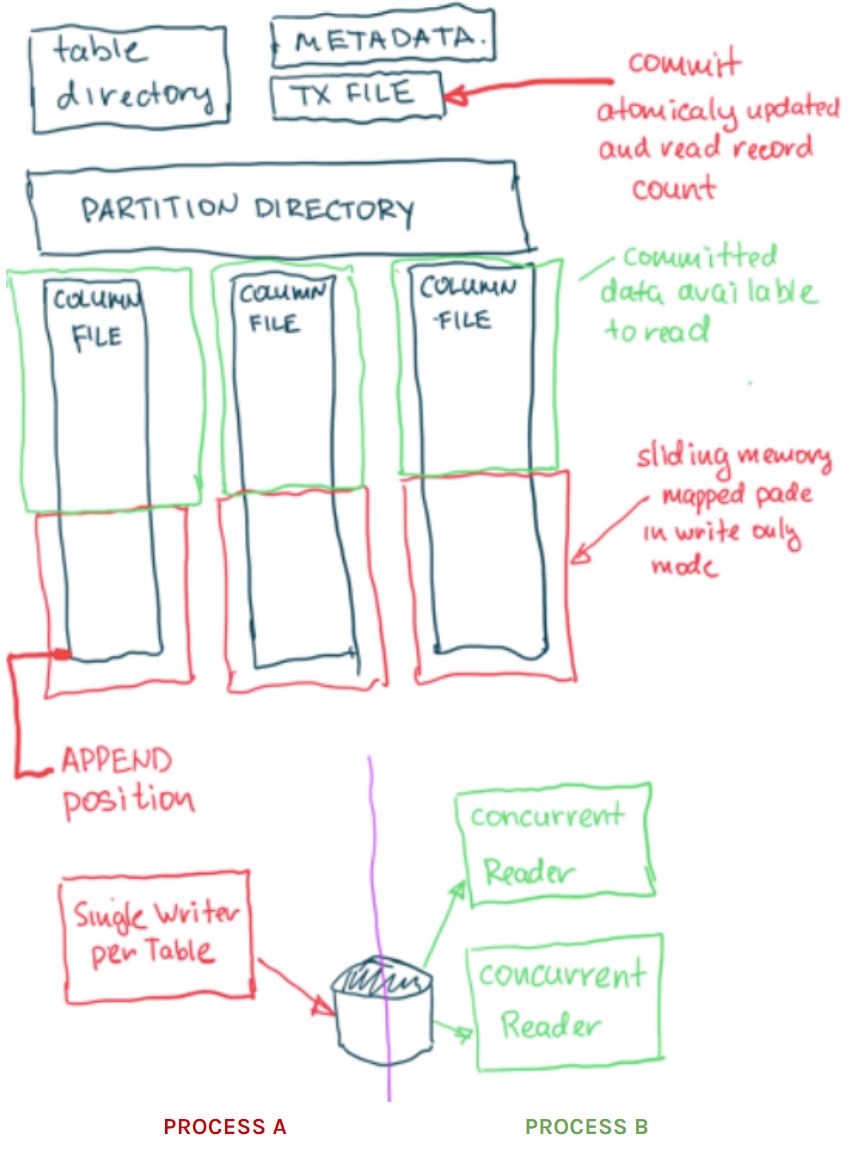 table
directory
METADATA.
TX FILE
commit
atomicaly updated
and read record
count
PARTITION DIRECTORY
COLUMN
FILE
COLUMN
FILE
COLUMN
FILE
committed
data available
to read
sliding memory
mapped pade
in write only
mode
APPEND
position
Single Writer
per Table
concurrent
Reader
concurrent
Reader
PROCESS A
PROCESS B